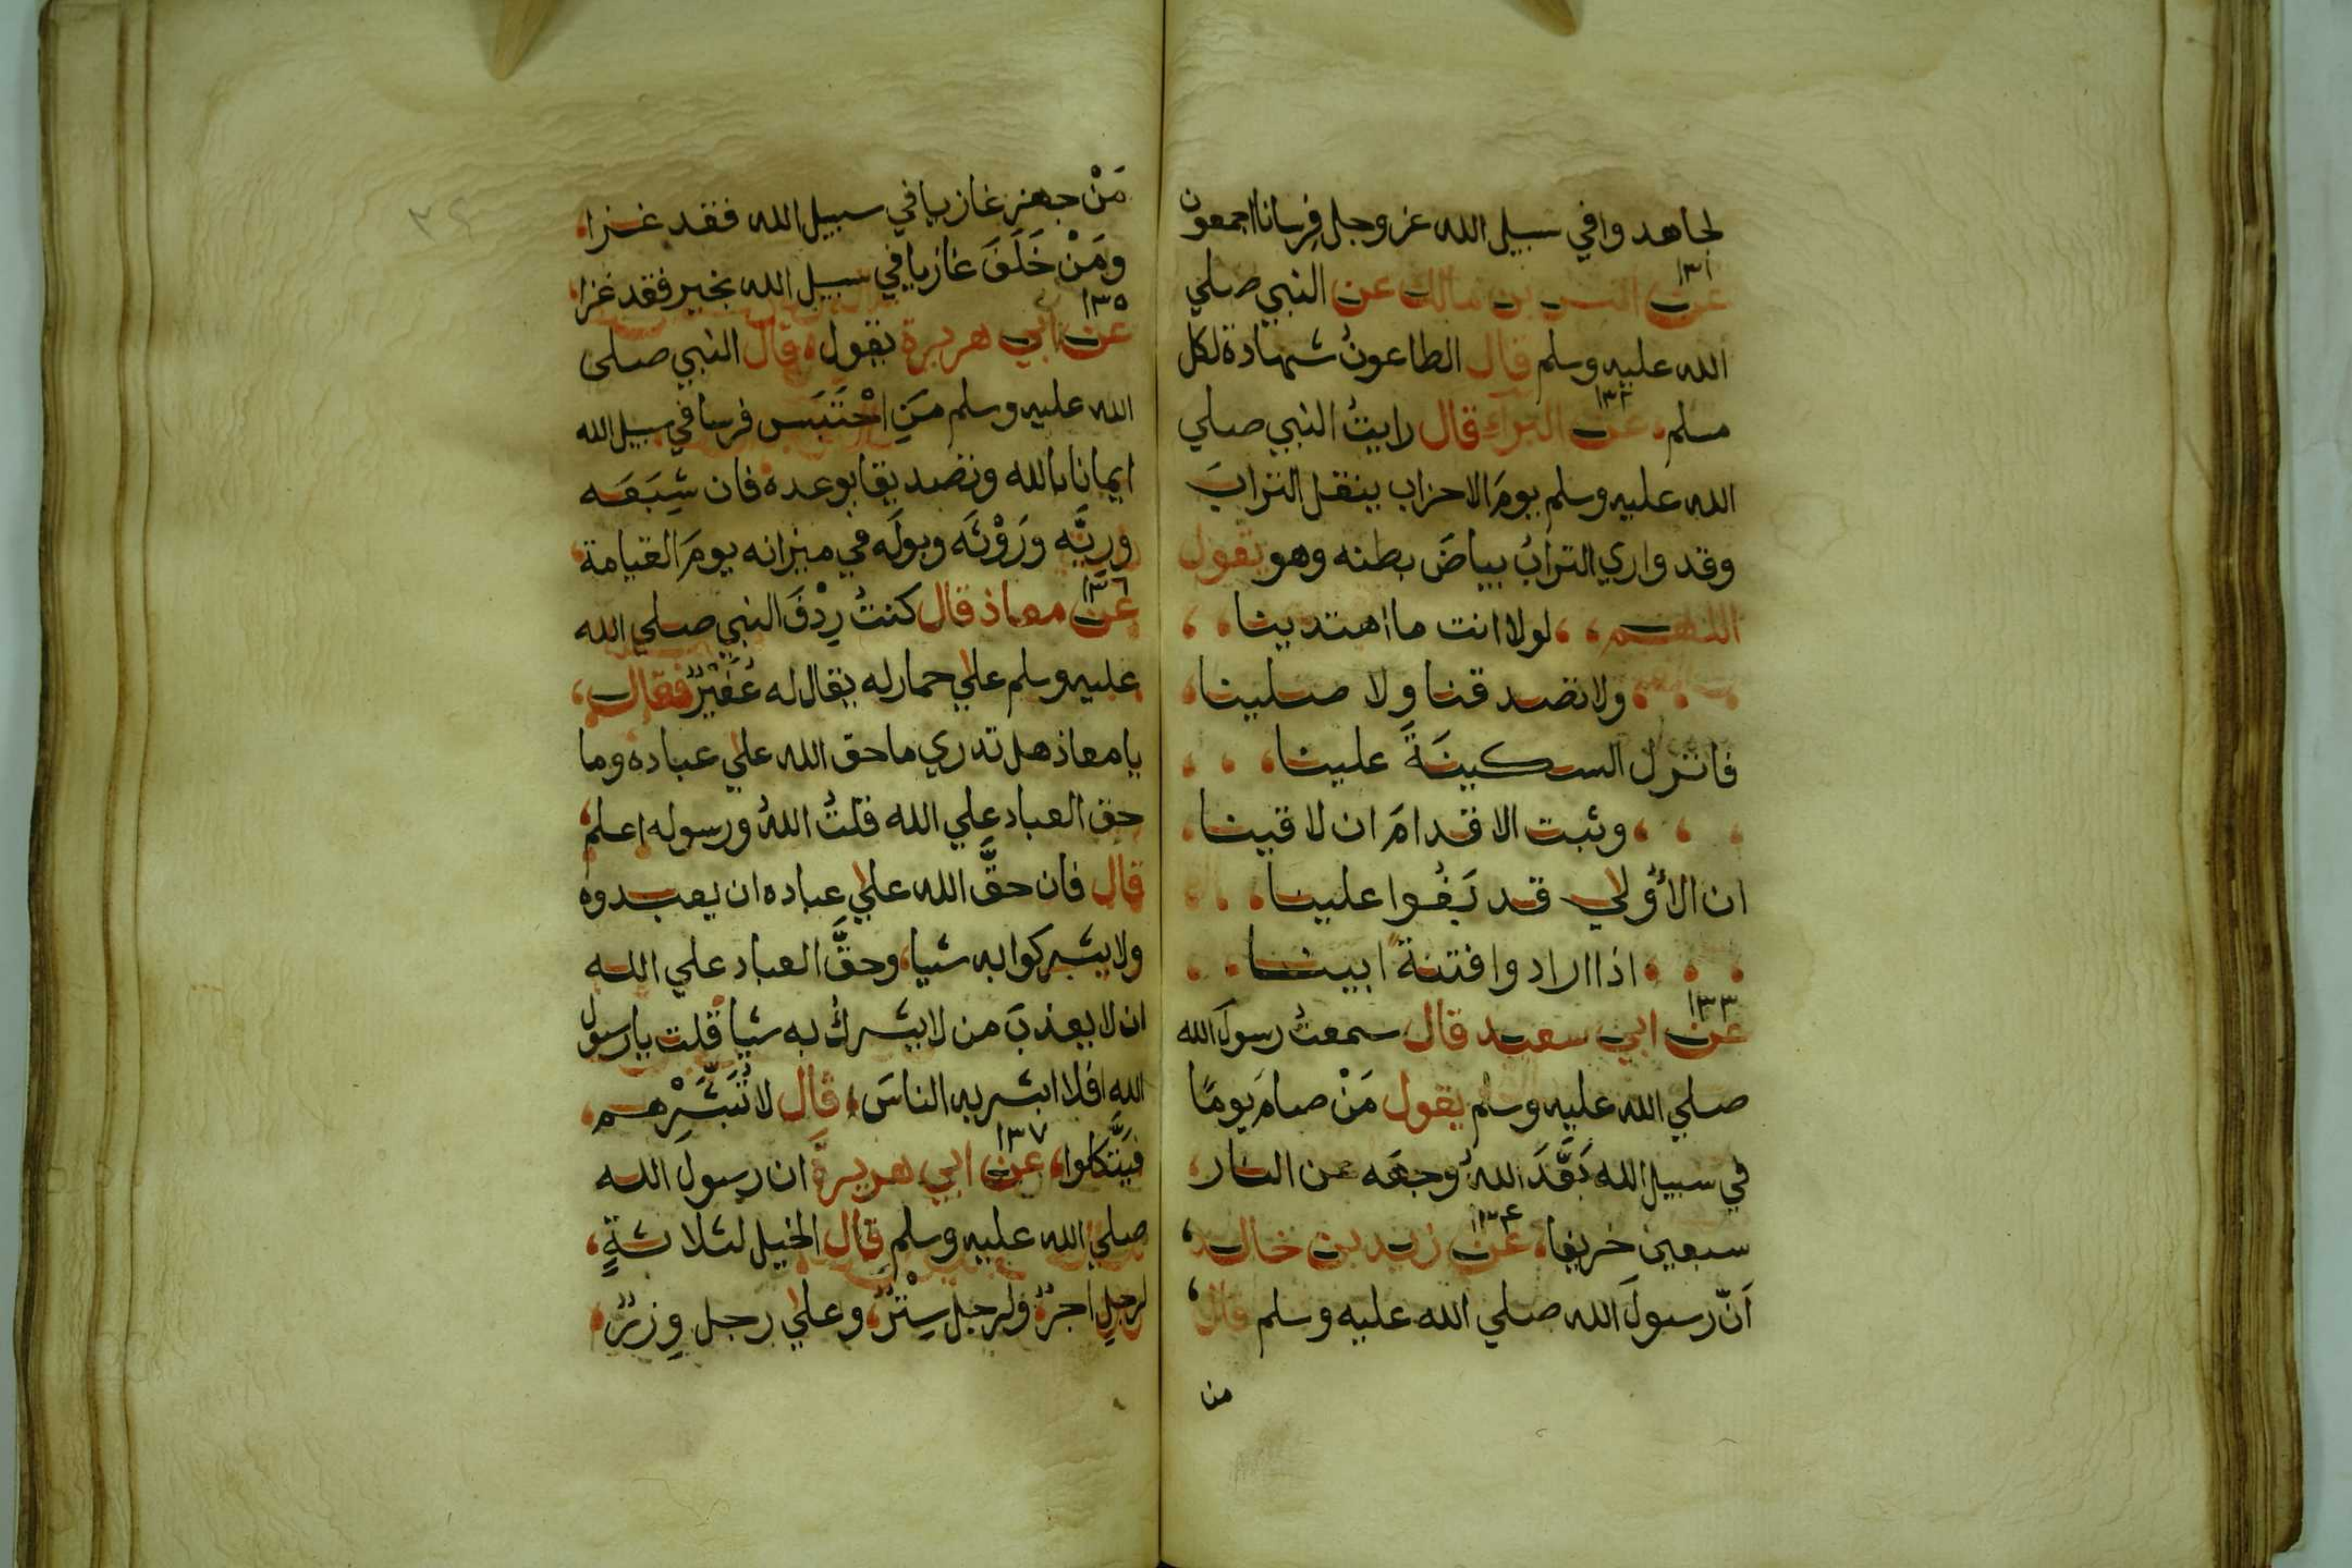 لجاهدوا في سبيل الله عز وجل فِرسانا اجمعون
١٣١
عن انس بن مالك عن النبي صلي
الله عليه وسلم قال الطاعونُ شهادة لكل
١٣٢
مسلم، عن البراء قال رايتُ النبي صلي
الله عليه وسلم يومَ الاحزاب ينقل الترابَ
وقد واري الترابُ بياضَ بطنه وهو يقول
اللهم، ، لولا انت ما اهتدينا ، ،
، ، ، ولا تصدقنا ولا صلينا ،
فانزل السكينَةَ علينا ، ، ،
، ، ، وثبت الاقدامَ ان لاقينا ،
ان الأُولي قد بَغُوا علينا ، ، ،
، ، ، اذا ارادوا فتنةً ابينا ، ،
١٣٣
عن ابي سعيد قال سمعتُ رسولَ الله
صلي الله عليه وسلم يقول مَنْ صامَ يومًا
في سبيل الله بَعَّدَ اللهُ وجهَه عن النار،
١٣٤
سبعين خريفا، عن زيد بن خالد،
اَنّ رسولَ الله صلي الله عليه وسلم قال،
من
٢٤
مَنْ جهز غازيا في سبيل الله فقد غزا،
ومَنْ خَلَفَ غازيا في سبيل الله بخير فقد غزا،
١٣٥
عن ابي هريرة يقول، قال النبي صلى
الله عليه وسلم مَنِ احْتَبَس فرسا في سبيل الله
ايمانا بالله وتصديقا بوعده فان شِبَعَه
ورِيَّه ورَوْثَه وبولَه في ميزانه يومَ القيامة،
١٣٦
عن معاذ قال كنتُ رِدْفَ النبي صلي الله
عليه وسلم علي حمار له يقال له عُفَيْرٌ فقال،
يا معاذ هل تدري ما حق الله علي عباده وما
حق العباد علي الله قلتُ اللهُ ورسوله اعلم،
قال فان حقَّ الله علي عباده ان يعبدوه
ولا يشركوا به شيا، وحقَّ العباد علي الله
ان لا يعذبَ من لا يشركُ به شيا قلت يا رسول
الله افلا ابشر به الناسَ، قال لا تُبَشِّرْهم،
١٣٧
فيَتَّكلوا، عن ابي هريرةَ ان رسولَ الله
صلي الله عليه وسلم قال الخيل لثلاثةٍ،
لرجلٍ اجرٌ، ولرجل سِتْرٌ، وعلي رجل وِزرٌ،